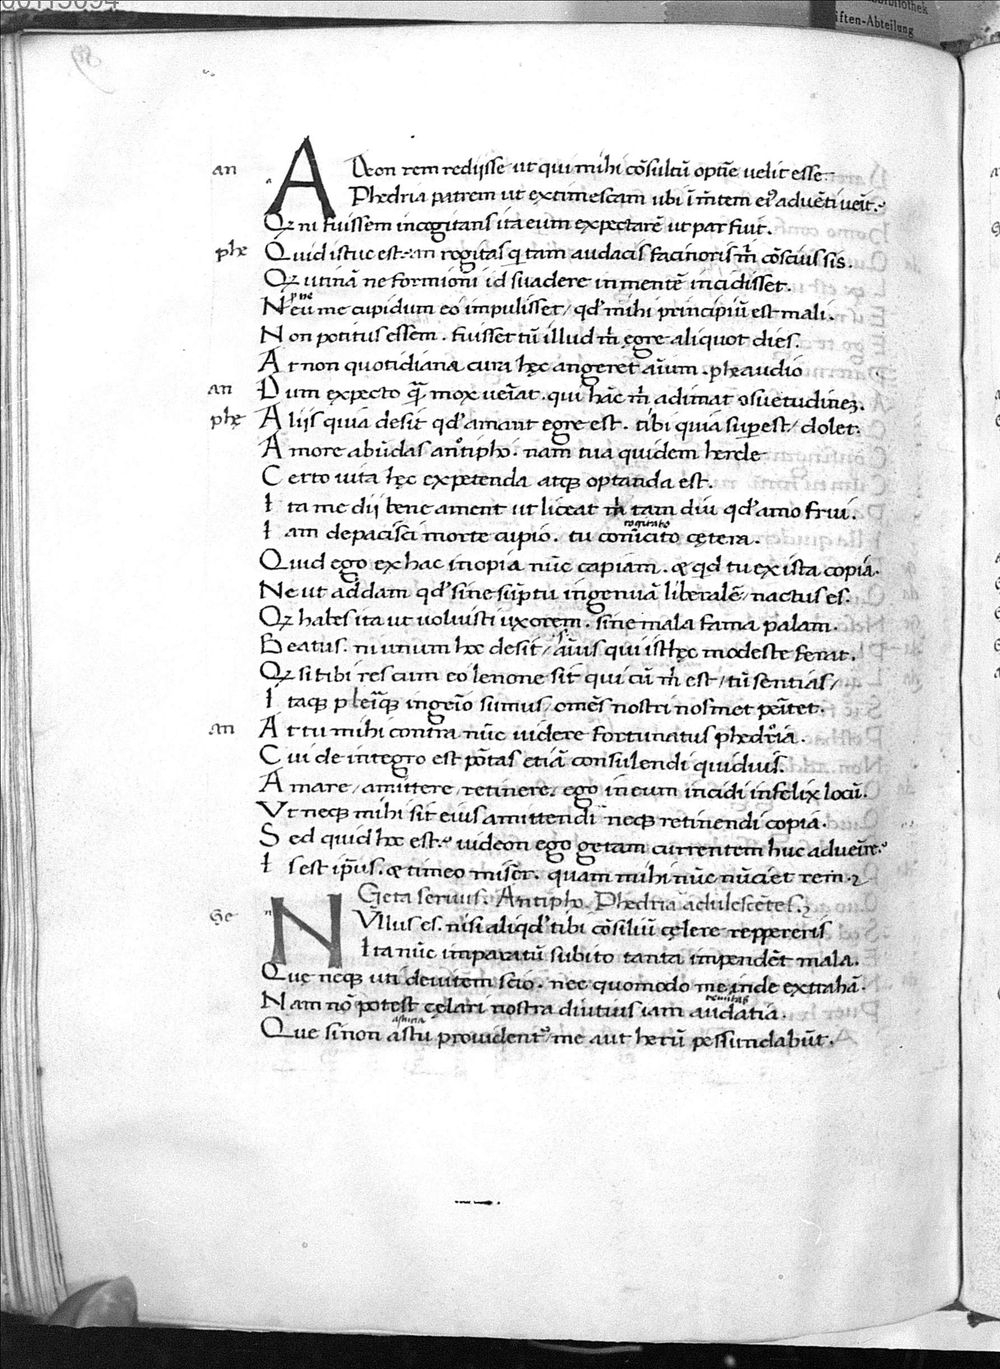 an ADeon rem redijsse ut qui mihi cōsultū optīe uelit esse
Phedria patrem ut extimescam ubi ī m̄tem eiꝰ aduēti ueīt.
Qꝫ ni fuissem incogitans ita eum expectarē ut par fuit.
phe Quid istuc est. an rogitas q tam audacis facinoris m̄ cōscius sis.
Qꝫ utinā ne formioni id suadere in mentē incidisset.
Neu me cupidum eo impulisset / qd' mihi principiū est mali.
Non potitus essem. fuisset tū illud m̄ egre aliquot dies.
At non quotidiana cura hęc angeret aīum. phe audio
an Dum expecto qͣ mox ueīat. qui hāc m̄ adimat ɔsuetudinēꝫ.
phę Aliis quia desit qd' amant egre est. tibi quia suꝑest / dolet.
Amore abūdas antipho. nam tua quidem hercle
Certo uita hęc expetenda atqꝫ optanda est.
Ita me dij bene ament ut liceat m̄ tam diu qd' amo frui.
rogitato
Iam depacisci morte cupio. tu conīicito cętera.
Quid ego ex hac inopia nūc capiam. & qd tu ex ista copiā.
Ne ut addam qd' sine sūptu ingenuā liberalē / nactus es.
Qꝫ habes ita ut uoluisti uxorem. sine mala fama palam.
Beatus. ni unum hoc desit / aīus qui isthęc modeste ferat.
Qꝫ si tibi res cum eo lenone sit qui cū m̄ est / tū sentias /
Itaqꝫ pleiqꝫ ingeīo sumus / omēs nostri nosmet peītet.
an At tu mihi contra nūc uidere fortunatus phedria.
Cui de integro est ptās etiā consulendi quiduis.
Amare / amittere / retinere. ego in eum incidi infelix locū.
Ut neqꝫ mihi sit eius amittendi neqꝫ retinendi copia.
Sed quid hoc est. uideon ego getam currentem huc adueīre.
Is est ip̄us. & timeo miser. quam mihi nūc nūciet rem.
Geta seruus. Antipho. Phedria adulescētes.
ge NUllus es. nisi aliqd' tibi cōsiliū cęlere reppereris
Ita nūc imparatū subito tanta impendēt mala.
Quę neqꝫ uti deuitem scio. nec quomodo me inde extrahā.
Nam nō potest cęlari nostra diutius iam audatia.
astutia
Que si non astu prouidentꝰ / me aut herū pessundabūt.